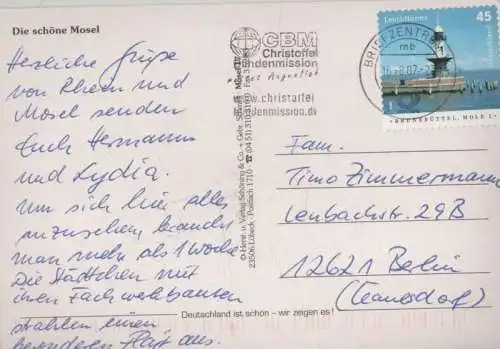 Die schöne Mosel
Herzliche Grüße
von Rhein und
Mosel senden
Euch Hermann
und Lydia.
Um sich hier alles
anzusehen, braucht
man mehr als 1 Woche
Die Städtchen mit
ihren Fachwerkbauten
strahlen einen
besonderen Flair aus.
© Herst. u. Verlag Schöning & Co. + Gebr. Schmidt
23506 Lübeck · Postfach 1710
CBM
Christoffel
Blindenmission
www.christoffel
blindenmission.de
BRIEFZENTRUM
mb
Leuchttürme
45
BRUNSBÜTTEL, MOLE 1
Fam.
Timo Zimmermann
Lenbachstr. 29B
12621 Berlin
(Kaulsdorf)
Deutschland ist schön – wir zeigen es!